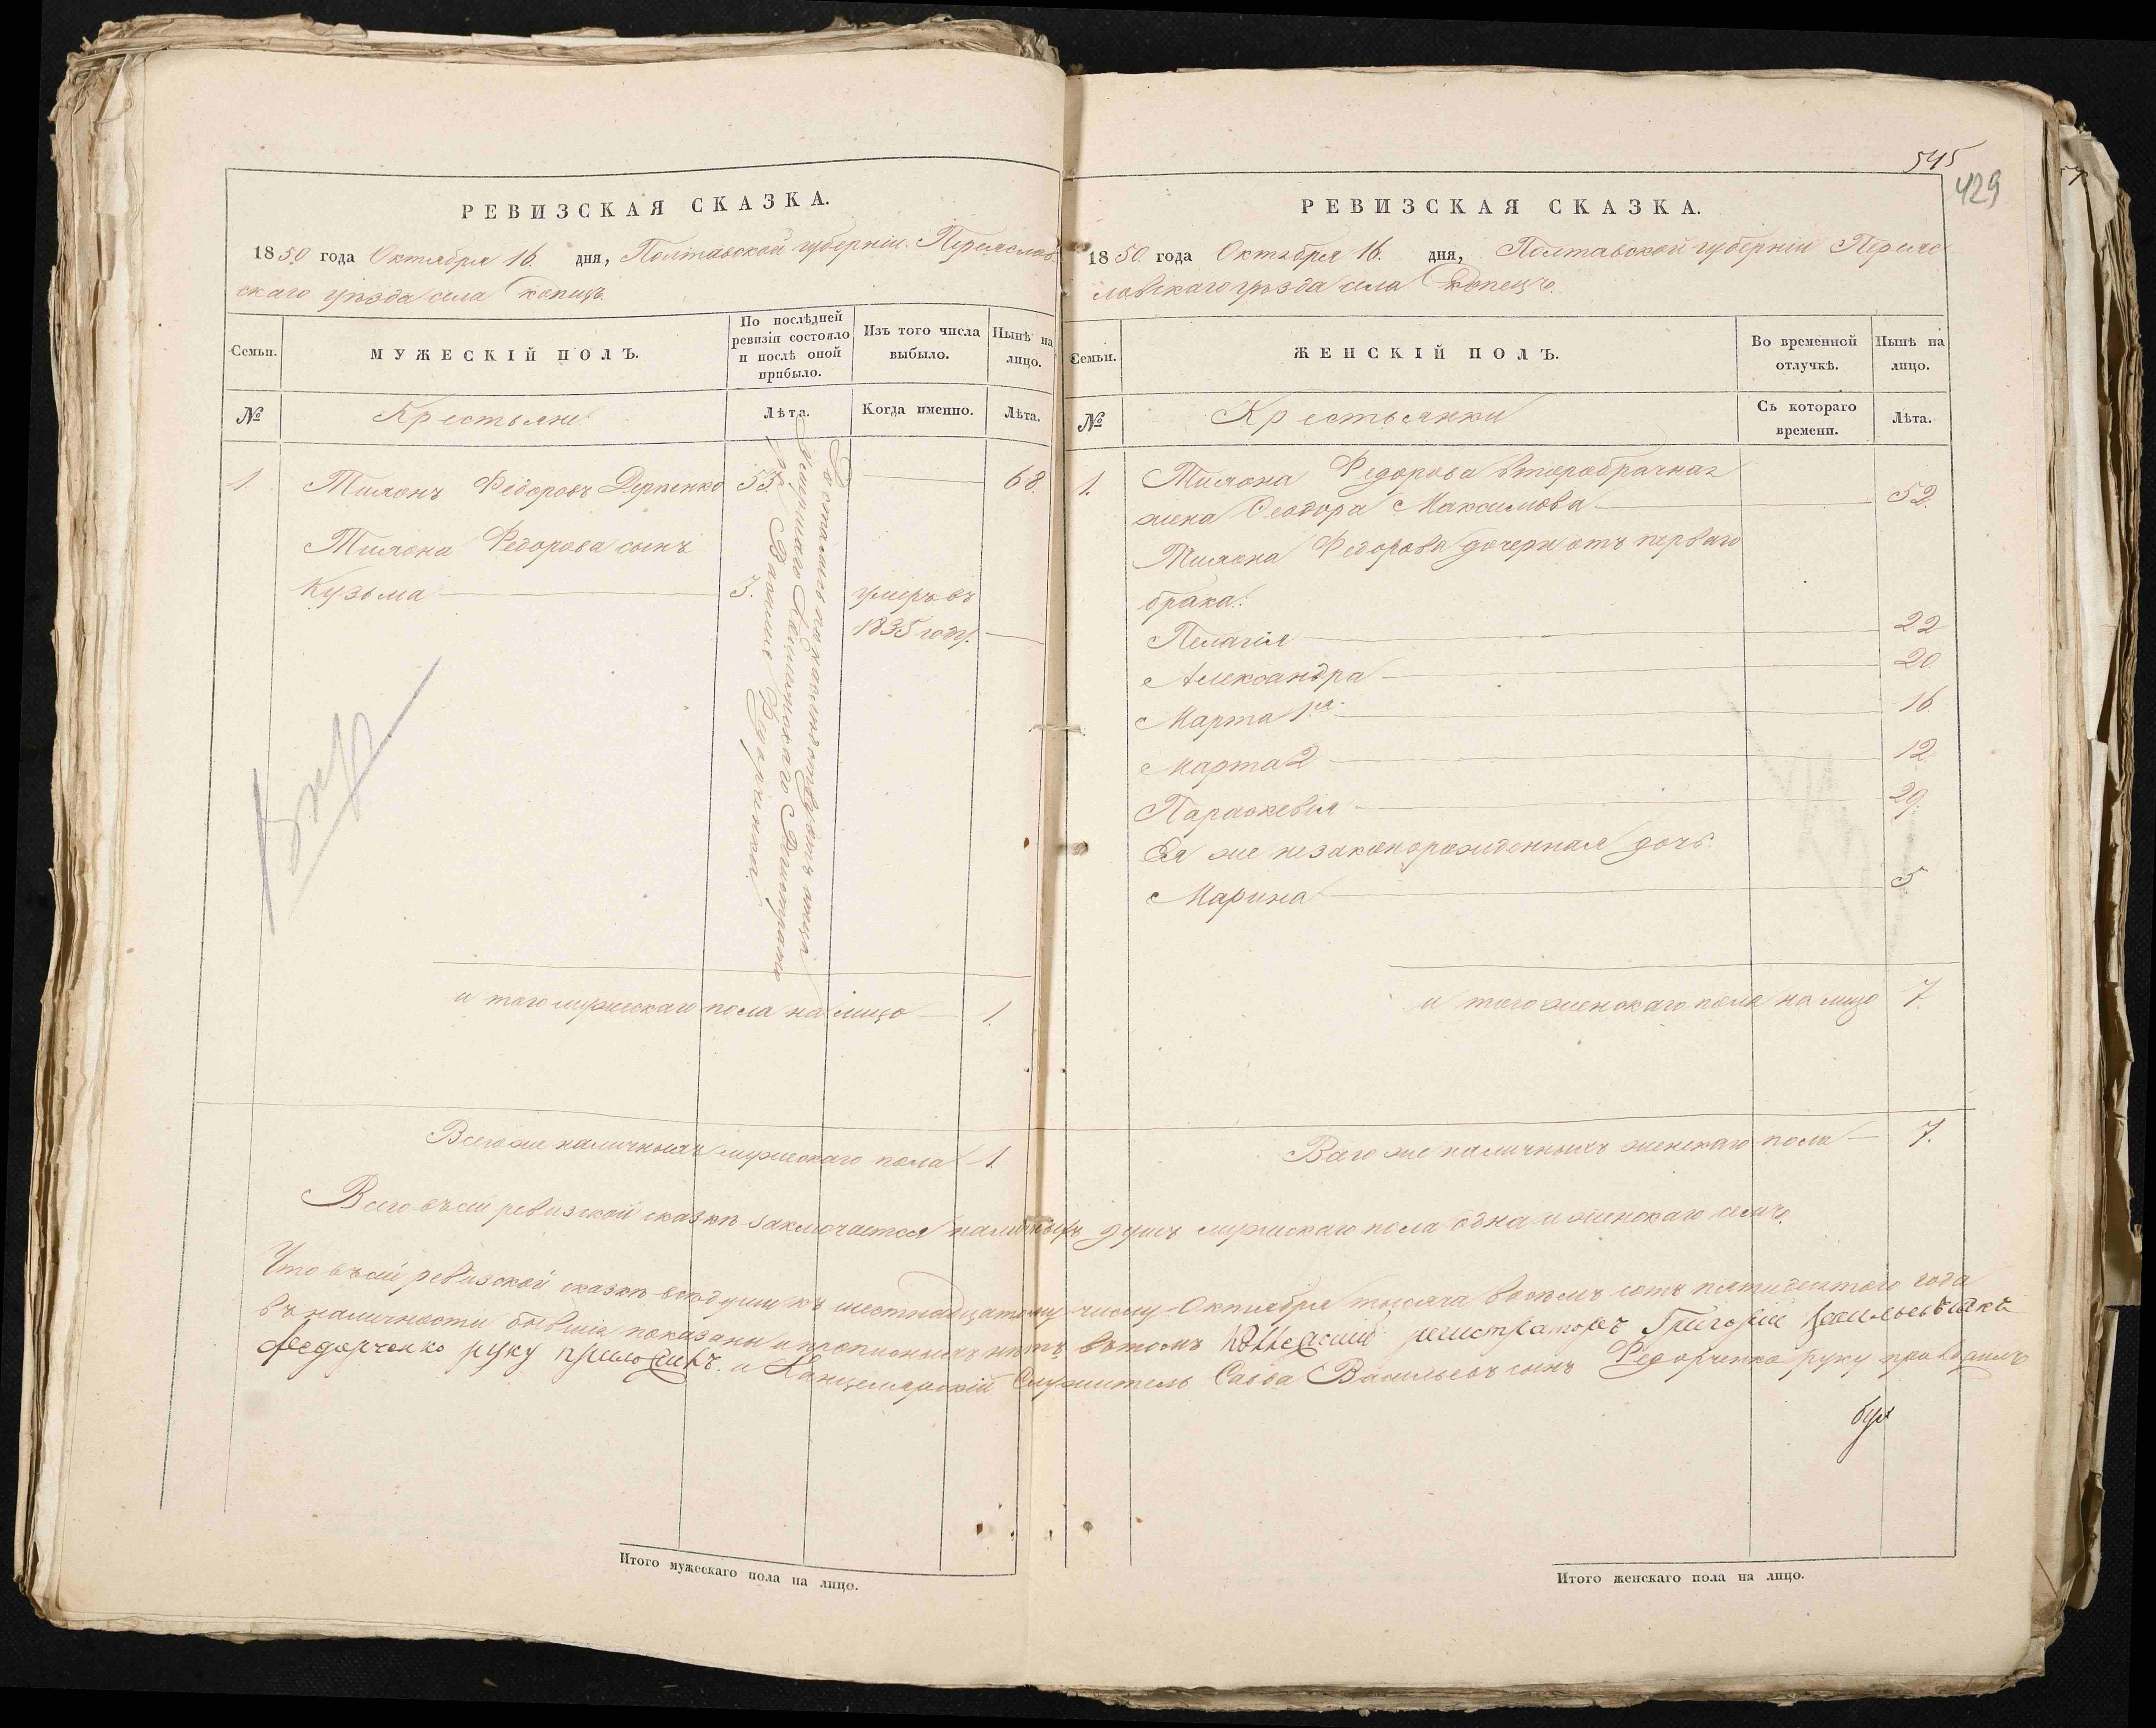 РЕВИЗСКАЯ СКАЗКА.
1850 года Октября 16 дня, Полтавской губерніи Переяслов
скаго уѣзда села Копецъ
Семьи.
МУЖЕСКІЙ ПОЛЪ.
По послѣдней ревизіи состояло и послѣ оной прибыло.
Изъ того числа выбыло.
Нынѣ на лицо.
№
Крестьяне
Лѣта.
Когда именно.
Лѣта.
1. Тимонъ Федоровъ 53. 68.
Тимона Федорова сынъ
Кузьма 3. умеръ въ
1835 году.
Достались по наслѣдству отъ отца
умершаго
Василія Федорченка
и того мужескаго пола на лицо 1.
Всего же наличныхъ мужескаго пола 1.
Итого мужескаго пола на лицо.
545
429
РЕВИЗСКАЯ СКАЗКА.
1850 года Октября 16. дня, Полтавской губерніи Переяс
ловскаго уѣзда села Копецъ.
Семьи.
ЖЕНСКІЙ ПОЛЪ.
Во временной отлучкѣ.
Нынѣ на лицо.
№
Крестьянки
Съ котораго времени.
Лѣта.
1. Тимона Федорова второбрачная
жена Феодора Максимова 52.
Тимона Федорова дочери отъ перваго
брака:
Пелагія 22
Александра 20
Марта 1я 16
Марта 2 12
Параскевія 29.
Ея же незаконорожденная дочь
Марина 5
и того женскаго пола на лицо 7
Всего же наличныхъ женскаго пола 7.
Всего въ сей ревизской сказкѣ заключается наличныхъ душъ мужескаго пола одна и женскаго семь.
Что въ сей ревизской сказкѣ всѣ души къ шестнадцатому числу Октября тысяча восемъ сотъ пятидесятого года
въ наличности бывшія показаны и прописныхъ нѣтъ въ томъ регистраторъ Григорій Васильевъ сынъ
Федорченко руку приложилъ. и Канцелярскій Служитель Савва Васильевъ сынъ Федорченко руку приложилъ
Итого женскаго пола на лицо.